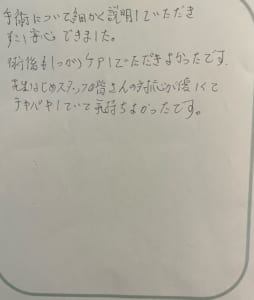 手術について細かく説明していただき
すごく安心できました。
術後もしっかりケアしていただきよかったです。
先生はじめスタッフの皆さんの対応が優しくて
テキパキしていて気持ちよかったです。